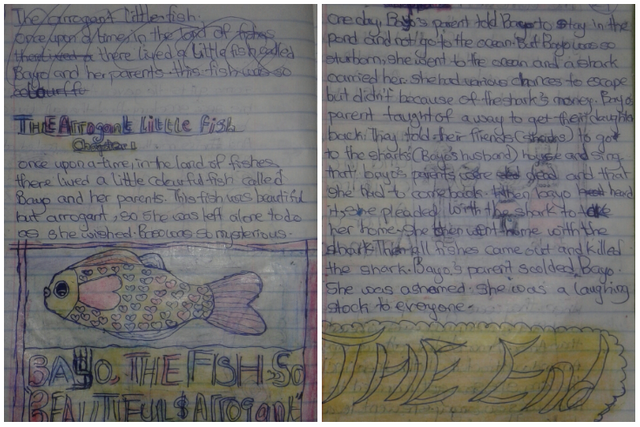 The arrogant little fish.
once upon a time, in the land of fishes
there lived a little fish called
Bayo and her parents. this fish was so
colourful
THE Arrogant Little Fish
Chapter 1
once upon a time, in the land of fishes
there lived a little colourful fish called
Bayo and her parents. This fish was beautiful
but arrogant, so she was left alone to do
as she wished. Bayo was so mysterious.
BAYO, THE FISH So
BEAUTIFUL & Arrogant
one day, Bayo's parent told Bayo to stay in the
pond and not go to the ocean. But Bayo was so
stubborn, she went to the ocean and a shark
carried her. she had various chances to escape
but didn't because of the shark's money. Bayo
parent taught of a way to get their daughter
back. They told their friends (sharks) to go
to the sharks (Bayo's husband) house and sing
that bayo's parents were dead and that
she had to come back. When Bayo heard
it, she pleaded with the shark to take
her home. she then went home with the
shark. Then all fishes came out and killed
the shark. Bayo's parent scolded Bayo.
She was ashamed. She was a laughing
stock to everyone.
THE End